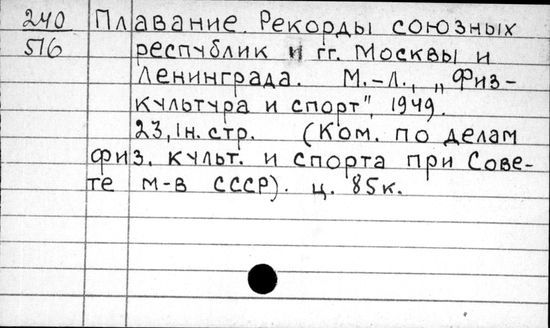 240 Плавание. Рекорды союзных
516 республик и гг. Москвы и
Ленинграда. М.-Л., „Физ-
культура и спорт", 1949.
23, 1н. стр. (Ком. по делам
физ. культ. и спорта при Сове-
те м-в СССР). ц. 85к.